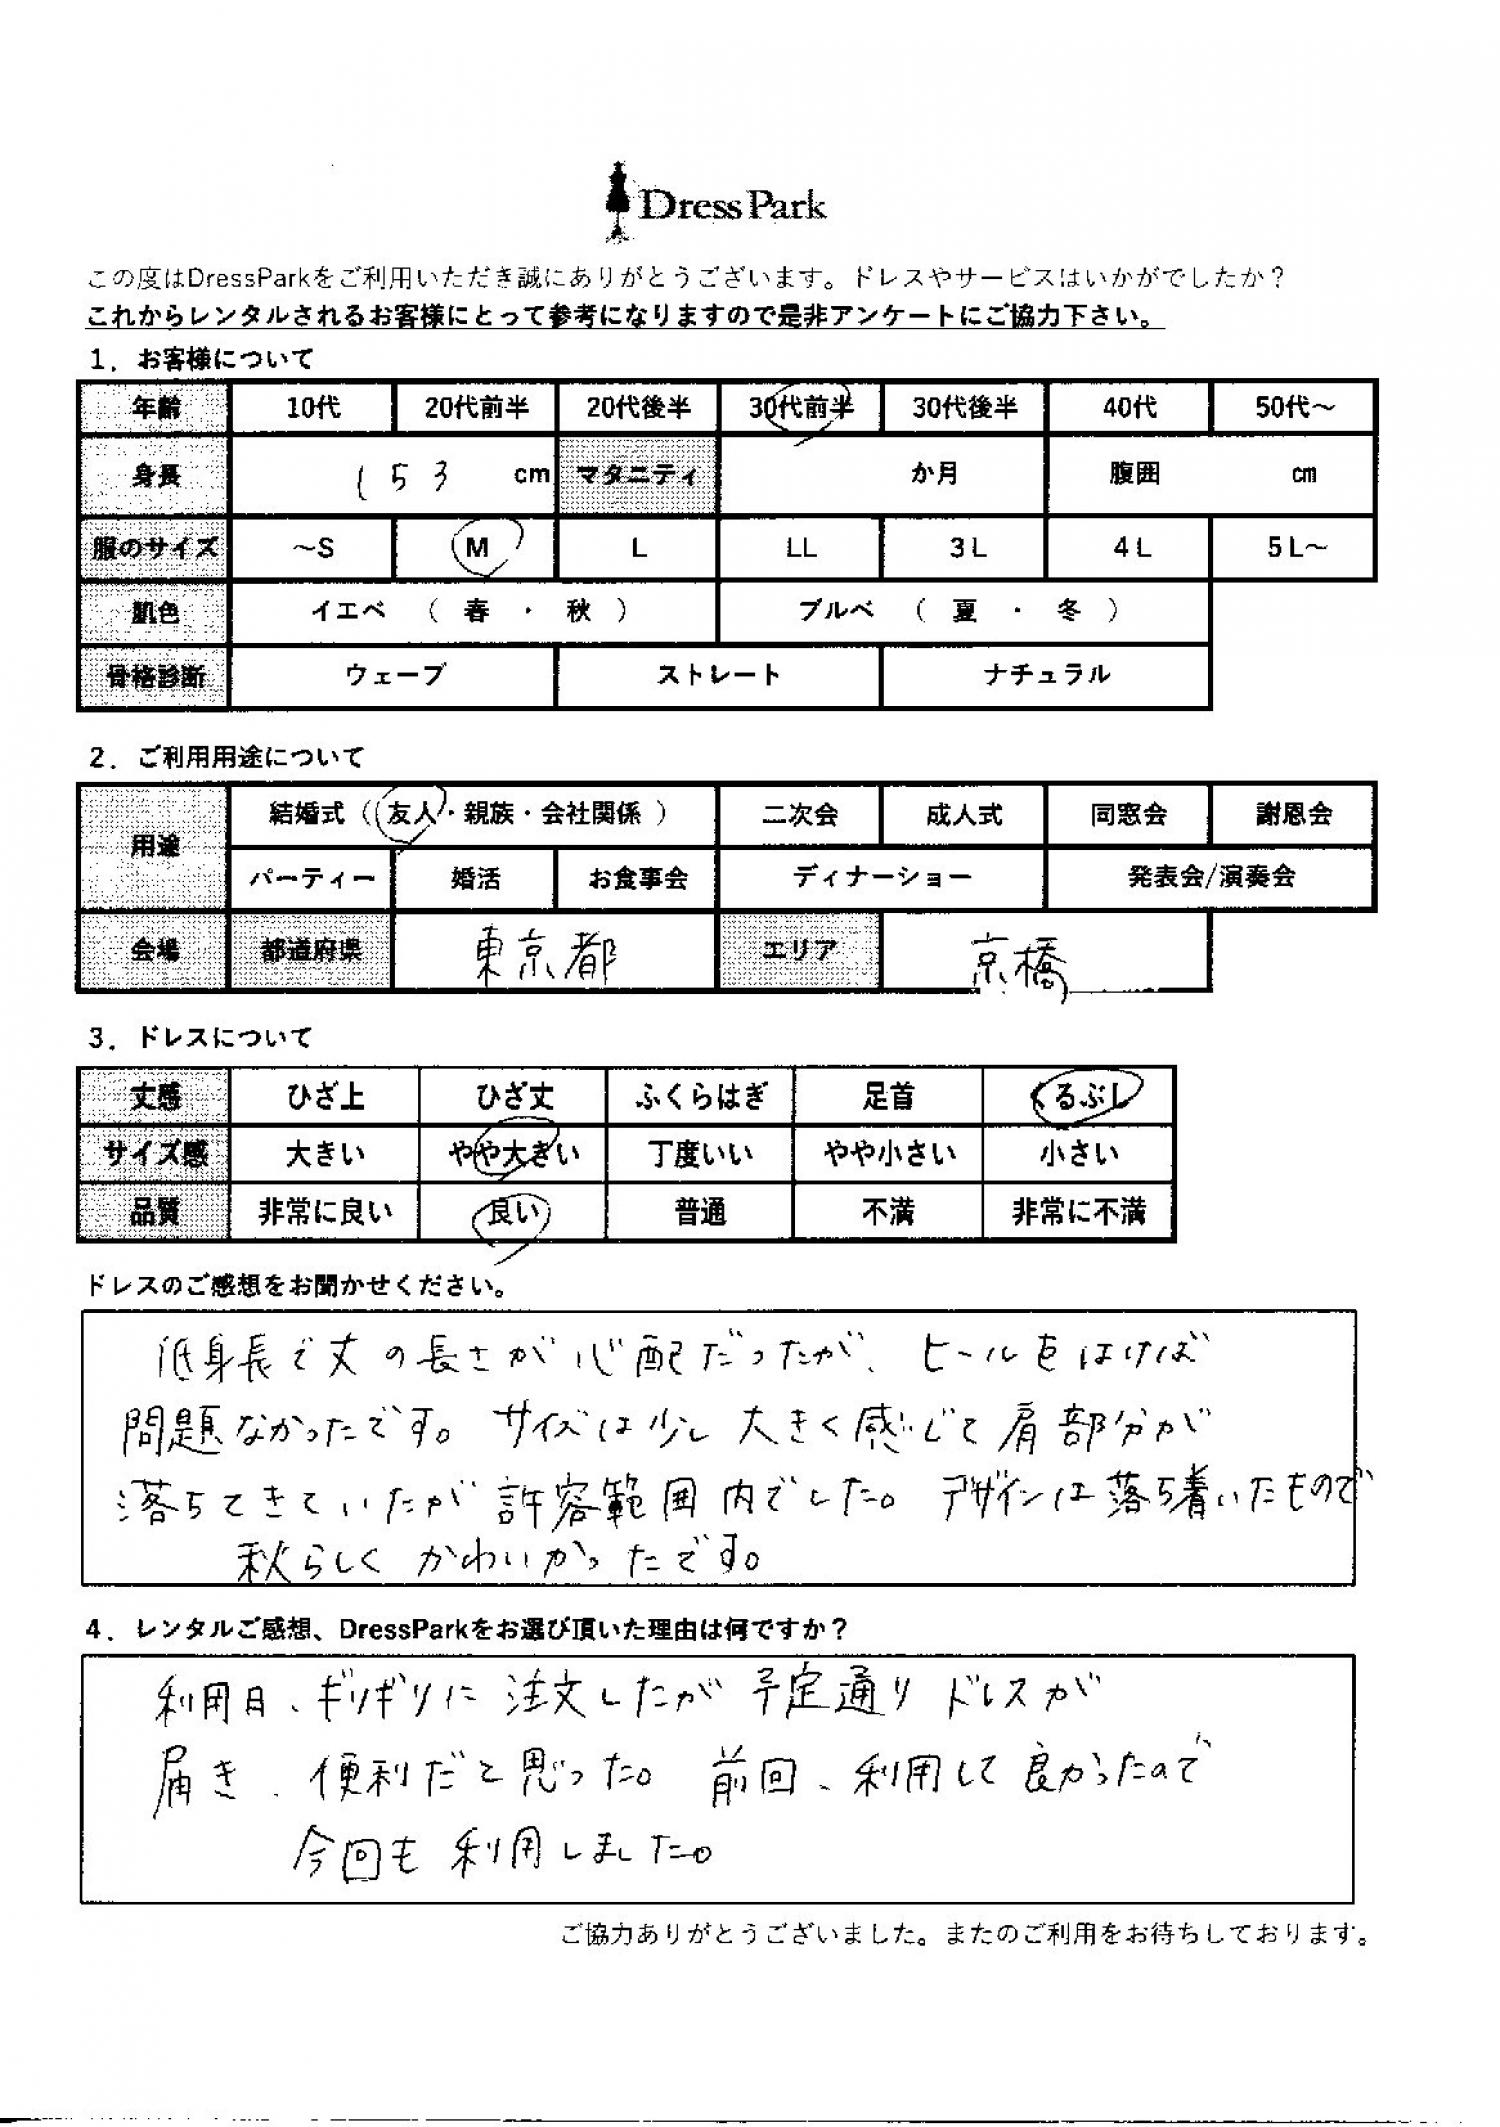 DressPark
この度はDressParkをご利用いただき誠にありがとうございます。ドレスやサービスはいかがでしたか？
これからレンタルされるお客様にとって参考になりますので是非アンケートにご協力下さい。
1．お客様について
年齢 10代 20代前半 20代後半 30代前半 30代後半 40代 50代～
身長 153 cm マタニティ か月 腹囲 cm
服のサイズ ～S M L LL 3L 4L 5L～
肌色 イエベ （ 春 ・ 秋 ） ブルベ （ 夏 ・ 冬 ）
骨格診断 ウェーブ ストレート ナチュラル
2．ご利用用途について
用途 結婚式（ 友人・親族・会社関係 ） 二次会 成人式 同窓会 謝恩会
パーティー 婚活 お食事会 ディナーショー 発表会/演奏会
会場 都道府県 東京都 エリア 京橋
3．ドレスについて
丈感 ひざ上 ひざ丈 ふくらはぎ 足首 くるぶし
サイズ感 大きい やや大きい 丁度いい やや小さい 小さい
品質 非常に良い 良い 普通 不満 非常に不満
ドレスのご感想をお聞かせください。
低身長で丈の長さが心配だったが、ヒールをはけば
問題なかったです。サイズは少し大きく感じて肩部分が
落ちてきていたが許容範囲内でした。デザインは落ち着いたもので
秋らしくかわいかったです。
4．レンタルご感想、DressParkをお選び頂いた理由は何ですか？
利用日、ギリギリに注文したが予定通りドレスが
届き、便利だと思った。前回、利用して良かったので
今回も利用しました。
ご協力ありがとうございました。またのご利用をお待ちしております。